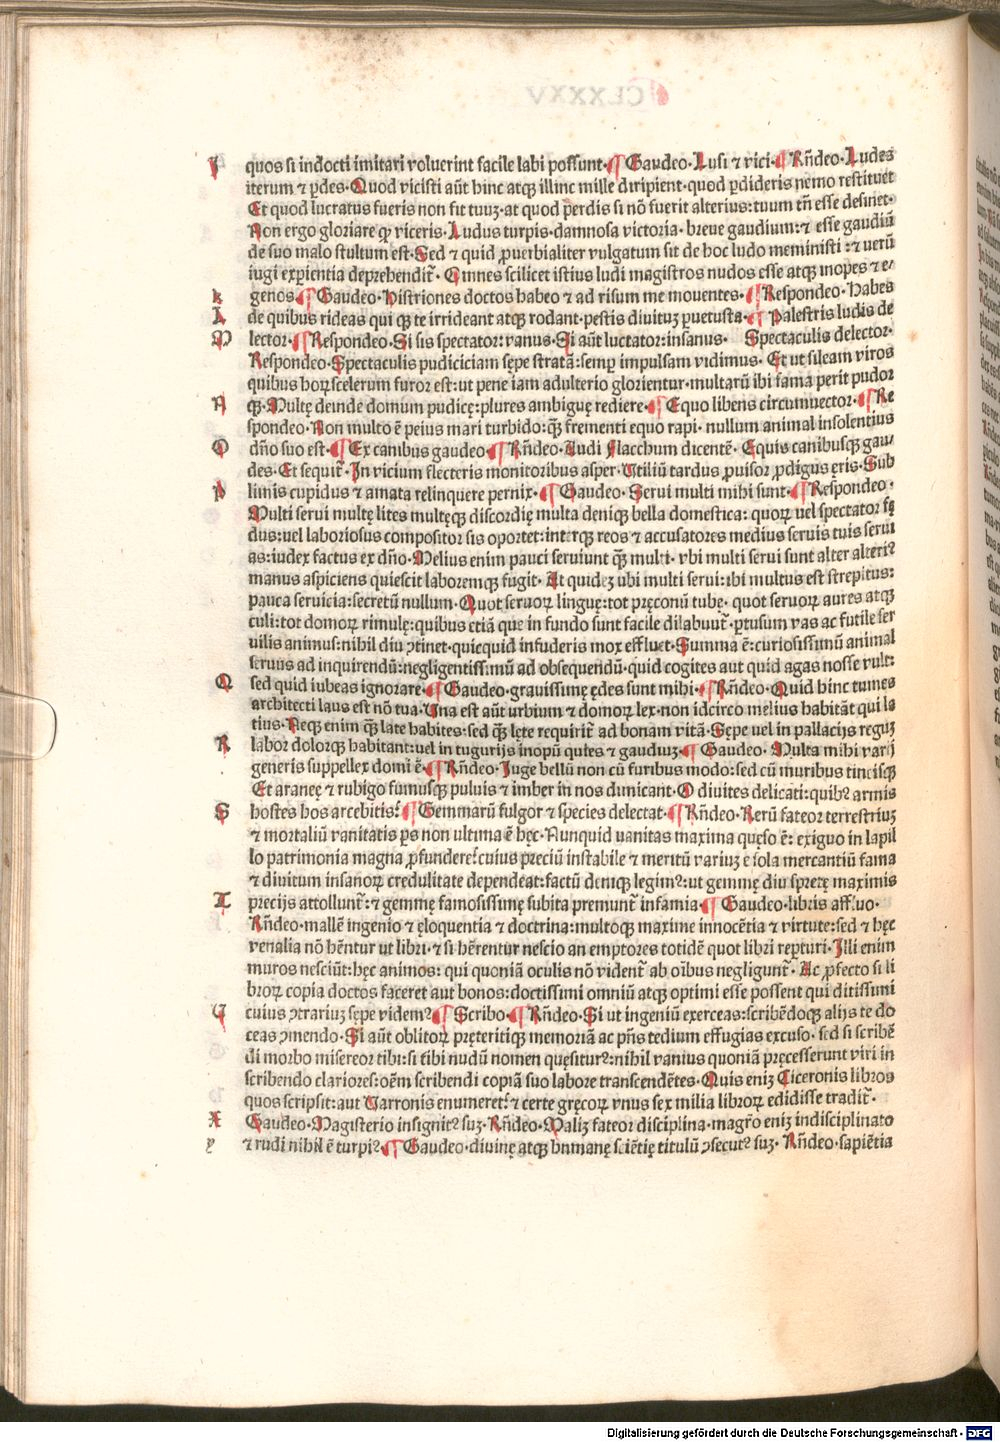 I quos si indocti imitari voluerint facile labi possunt. ¶ Gaudeo. Lusi ⁊ vici. ¶ Rñdeo. Ludes
iterum ⁊ ꝑdes. Quod vicisti aūt hinc atqꝫ illinc mille diripient. quod ꝑdideris nemo restituet
Et quod lucratus fueris non fit tuuꝫ. at quod perdis si nō fuerit alterius: tuum tñ esse desinet.
Non ergo gloriare ꝙ viceris. Ludus turpis. damnosa victoria. breue gaudium: ⁊ esse gaudiū
de suo malo stultum est. Sed ⁊ quid ꝓuerbialiter vulgatum sit de hoc ludo meministi: ⁊ verū
iugi exꝑientia deprehendit᷑. Omnes scilicet istius ludi magistros nudos esse atqꝫ inopes ⁊ e/
k genos. ¶ Gaudeo. Histriones doctos habeo ⁊ ad risum me mouentes. ¶ Respondeo. Habes
L de quibus rideas qui qꝫ te irrideant atqꝫ rodant. pestis diuituꝫ ꝑuetusta. ¶ Palestris ludis de
M lector. ¶ Respondeo. Si sis spectator: vanus. Si aūt luctator: insanus. Spectaculis delector.
Respondeo. Spectaculis pudiciciam sepe stratā: semꝑ impulsam vidimus. Et ut sileam viros
quibus hoꝝ scelerum furor est: ut pene iam adulterio glorientur. multarū ibi fama perit pudor
N qꝫ. Multę deinde domum pudicę: plures ambiguę rediere. ¶ Equo libens circumuector. ¶ Re
spondeo. Non multo ē peius mari turbido: qꝫ̄ frementi equo rapi. nullum animal insolentius
O dño suo est. ¶ Ex canibus gaudeo. ¶ Rñdeo. Audi Flacchum dicentē. Equis canibusqꝫ gau/
des. Et sequit᷑. In vicium flecteris monitoribus asper. Utiliū tardus ꝓuisor ꝓdigus ęris. Sub
P limis cupidus ⁊ amata relinquere pernix. ¶ Gaudeo. Serui multi mihi sunt. ¶ Respondeo.
Multi serui multę lites multęqꝫ discordię multa deniqꝫ bella domestica: quoꝝ vel spectator fę
dus: vel laboriosus compositor sis oportet: interqꝫ reos ⁊ accusatores medius seruis tuis serui
as: iudex factus ex dño. Melius enim pauci seruiunt qꝫ̄ multi. vbi multi serui sunt alter alteriꝰ
manus aspiciens quiescit laboremqꝫ fugit. At quideꝫ ubi multi serui: ibi multus est strepitus:
pauca seruicia: secretū nullum. Quot seruoꝝ linguę: tot pręconū tubę. quot seruoꝝ aures atqꝫ
culi: tot domoꝝ rimulę: quibus etiā que in fundo sunt facile dilabuut᷑. ꝑtusum vas ac futile ser
uilis animus: nihil diu ꝯtinet. quicquid infuderis mox effluet. Summa ē: curiosissimū animal
seruus ad inquirendū: negligentissimū ad obsequendū. quid cogites aut quid agas nosse vult:
Q sed quid iubeas ignorare. ¶ Gaudeo. grauissimę ędes sunt mihi. ¶ Rñdeo. Quid hinc tumes
architecti laus est nō tua. Una est aūt urbium ⁊ domoꝝ lex. non idcirco melius habitāt qui la
tius. Neqꝫ enim qꝫ̄ late habites: sed qꝫ̄ lęte requirit᷑ ad bonam vitā. Sępe vel in pallacijs reguꝫ
R labor dolorqꝫ habitant: vel in tugurijs inopū quies ⁊ gaudiuꝫ. ¶ Gaudeo. Multa mihi varij
generis suppellex domi ē. ¶ Rñdeo. Iuge bellū non cū furibus modo: sed cū muribus tineisqꝫ
Et araneę ⁊ rubigo fumusqꝫ puluis ⁊ imber in nos dimicant. O diuites delicati: quibꝰ armis
S hostes hos arcebitis? ¶ Gemmarū fulgor ⁊ species delectat. ¶ Rñdeo. Rerū fateor terrestriuꝫ
⁊ mortaliū vanitatis ꝑs non ultima ē hęc. Nunquid vanitas maxima quęso ē: exiguo in lapil
lo patrimonia magna ꝓfundere? cuius preciū instabile ⁊ meritū variuꝫ e sola mercantiū fama
⁊ diuitum insanoꝝ credulitate dependeat: factū deniqꝫ legimꝰ: ut gemmę diu spretę maximis
T precijs attollunt᷑: ⁊ gemmę famosissimę subita premunt᷑ infamia. ¶ Gaudeo. libris affluo.
Rñdeo. mallē ingenio ⁊ ęloquentia ⁊ doctrina: multoqꝫ maxime innocētia ⁊ virtute: sed ⁊ hęc
venalia nō hēntur ut libri. ⁊ si hērentur nescio an emptores totidē quot libri reꝑturi. Illi enim
muros nesciūt: hęc animos: qui quoniā oculis nō vident᷑ ab oībus negligunt᷑. Ac ꝓfecto si li
broꝝ copia doctos faceret aut bonos: doctissimi omniū atqꝫ optimi esse possent qui ditissimi
V cuius ꝯtrariuꝫ sępe videmꝰ ¶ Scribo. ¶ Rñdeo. Si ut ingeniū exerceas: scribēdoqꝫ alijs te do
ceas ꝯmendo. Si aūt oblitoꝝ pręteritiqꝫ memoriā ac pñs tedium effugias excuso. sed si scribē
di morbo misereor tibi: si tibi nudū nomen quęsiturꝰ: nihil vanius quoniā pręcesserunt viri in
scribendo clariores: oēm scribendi copiā suo labore transcendētes. Quis eniꝫ Ciceronis libros
quos scripsit: aut Varronis enumeret? ⁊ certe gręcoꝝ vnus sex milia libroꝝ edidisse tradit᷑.
X Gaudeo. Magisterio insignitꝰ suꝫ. Rñdeo. Maliꝫ fateor disciplina. magr̄o eniꝫ indisciplinato
y ⁊ rudi nihil ē turpiꝰ. ¶ Gaudeo. diuinę atqꝫ humanę sciētię titulū ꝯsecutꝰ suꝫ. Rñdeo. sapiētia
Digitalisierung gefördert durch die Deutsche Forschungsgemeinschaft - DFG